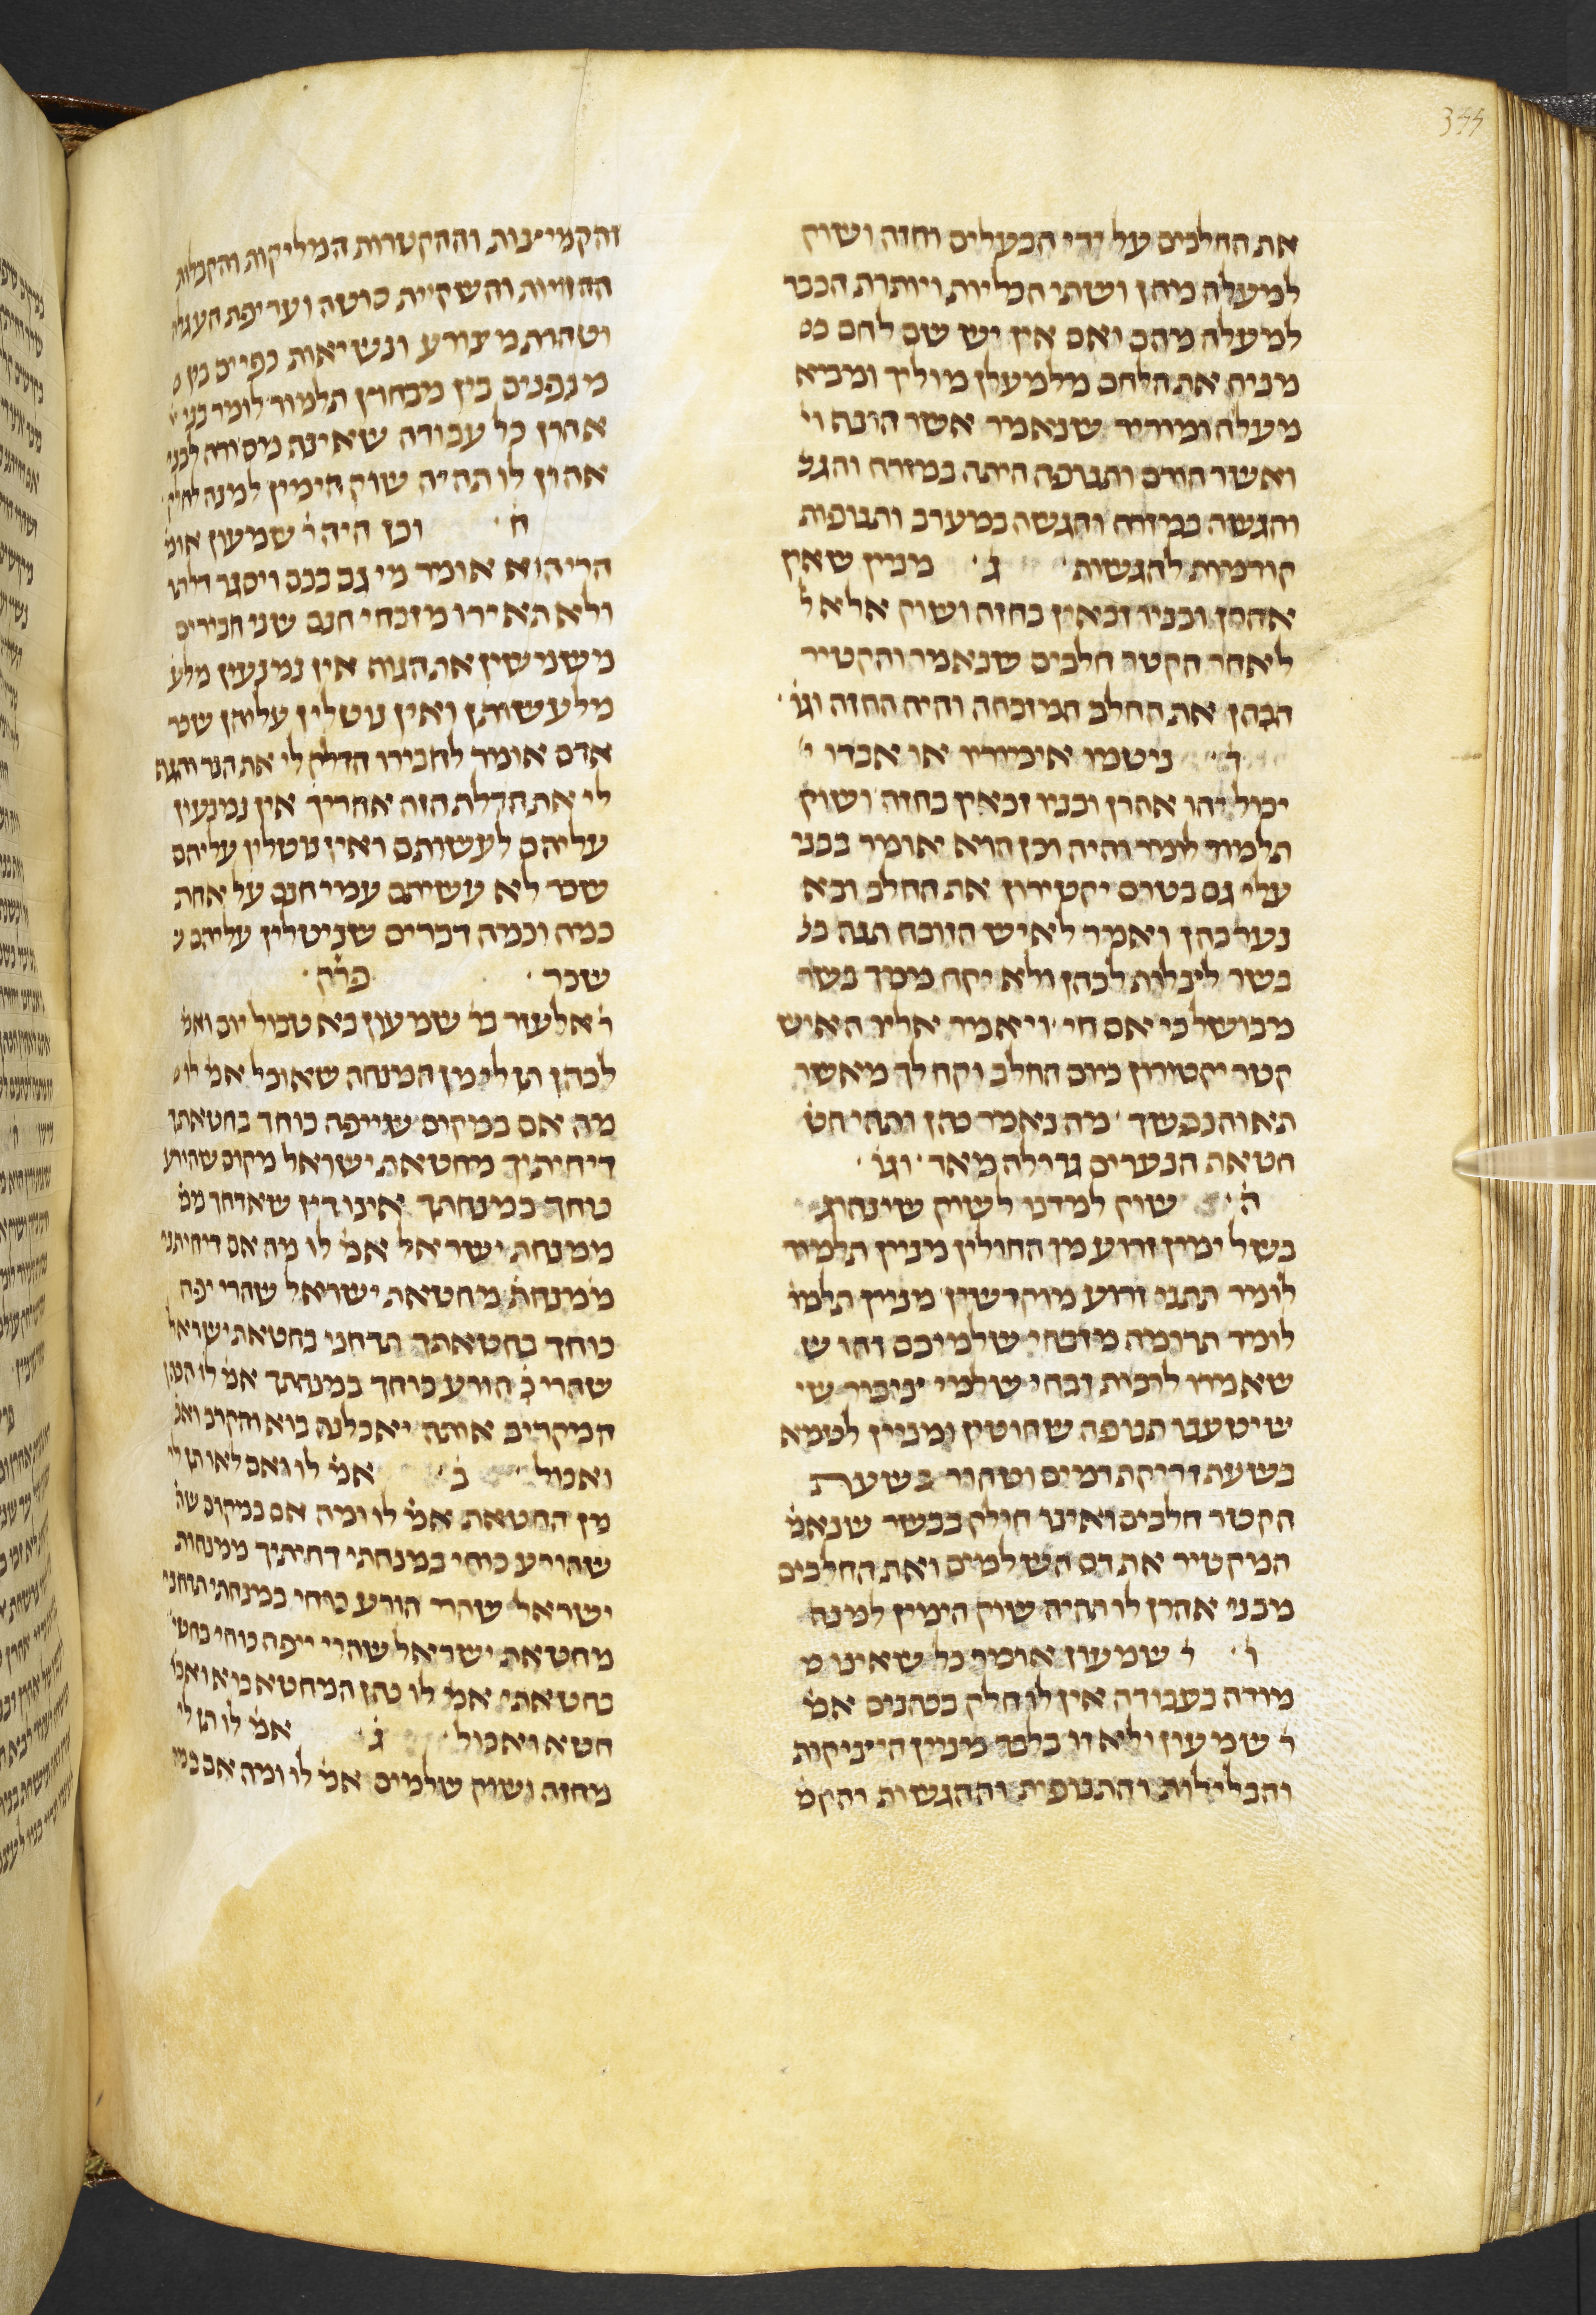 344
את החלבים על ידי הבעלים וחזה ושוק
למעלה מהן ושתי הכליות ויותרת הכבד
למעלה מהם ואם אין יש שם לחם ככ
מנית את הלחם מלמעלן מוליך ומביא
מעלה ומוריד שנאמר אשר הונף וי
ואשר הורם ותנופה היתה במזרח והגש
והגשה במזרח והגשה במערב ותנופות
קודמות להגשות ׳ ג ׳ מנין שאין
אהרן ובניו זכאין בחזה ושוק אלא ל
לאחר הקטר חלבים שנאמר והקטיר
הכהן את החלב המזבחה והיה החזה וגו׳
ד ׳ ניטמו אימורין או אבדו י
יכול יהו אהרן ובניו זכאין בחזה ושוק
תלמוד לומר והיה וכן הוא אומר בבני
עלי גם בטרם יקטירון את החלב ובא
נער כהן ואמר לאיש הזובח תנה בש
בשר לצלות לכהן ולא יקח ממך בשר
מבושל כי אם חי ׳ ויאמר אליו האיש
קטר יקטירון כיום החלב וקח לך מאשר
תאוה נפשך ׳ מה נאמר כהן ותהי חט
חטאת הנערים גדולה מאד ׳ וגו׳
ה ׳ שוק למדנו לשוק שינהוג
בשל ימין זרוע מן החולין מניין תלמוד
לומר תתנו זרוע מוקדשין מניין תלמו
לומר תרומה מזבחי שלמיכם זהו ש
שאמרו לרבות זבחי שלמי ציבור שי
שיטענו תנופה שחוטין ומניין לטמא
בשעת זריקת דמים וטהור בשעת
הקטר חלבים ואינו חולק בבשר שנאמ׳
המקטיר את דם השלמים ואת החלבים
מבני אהרן לו תהיה שוק הימין למנה
ו ׳ ר׳ שמעון אומר כל שאינו מ
מודה בעבודה אין לו חלק בכהנים אמ׳
ר׳ שמעון ולא זו בלבד מניין היציקות
והבלילות והתנופות וההגשות והקמ׳
והקמיצות וההקטרות המליקות והקבלות
ההזיות והשקיית סוטה ועריפת העגלה
וטהרת מצורע ונשיאות כפיים בין מ
מבפנים בין מבחוץ תלמוד לומר בני א
אהרן כל עבודה שאינה מסורה לבני
אהרן לו תהיה שוק הימין למנה לחלק
ח ׳ וכן היה ר׳ שמעון אומ׳
הרי הוא אומר מי גם בכם ויסגר דלתי
ולא תאירו מזבחי חנם שני חבירים
משמשין את הגוה אין נמנעין מלע
מלעשותן ואין נוטלין עליהן שכר
אדם אומר לחבירו הדלק לי את הנר והגף
לי את הדלת הזה אחריך אין נמנעין
עליהם לעשותם ואין נוטלין עליהם
שכר לא עשיתם עמי חנם על אחת
כמה וכמה דברים שניטלין עליהם ש
שכר ׳ פרק ׳
ר׳ אלעזר בר׳ שמעון בא טבול יום ואמ׳
לכהן תן לי מן המנחה שאוכל אמ׳ לו מ
מה אם במקום שייפה כוחך בחטאתך
דיחיתיך מחטאת ישראל מקום שהורע
כוחך במנחתך אינו דין שאדחך ממ׳
ממנחת ישראל אמ׳ לו מה אם דיחיתני
ממנחת מחטאת ישראל שהרי יפה
כוחך בחטאתך תדחני בחטאת ישראל
שהרי כ׳ הורע כוחך במנחתך אמ׳ לו הכהן
המקריב אותה יאכלנה בוא והקרב ואכ׳
ואכול ׳ ב ׳ אמ׳ לו ואם לאו תן לי
מן החטאת אמ׳ לו ומה אם במקום שה׳
שהורע כוחי במנחתי דחיתיך ממנחות
ישראל שהרי הורע כוחי במנחתי תדחני
מחטאת ישראל שהרי ייפה כוחי בחט׳
בחטאתי אמ׳ לו כהן המחטא בוא ואכ׳
חטא ואכול ׳ ג ׳ אמ׳ לו תן לי
מחזה ושוק שלמים אמ׳ לו ומה אם במ׳